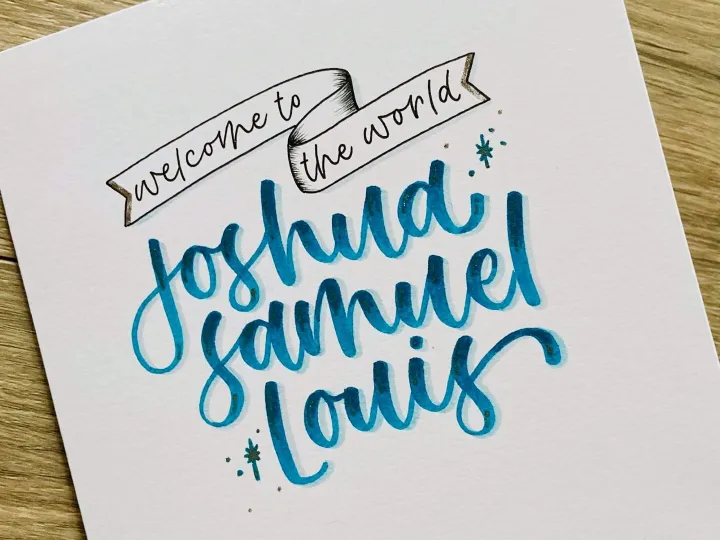 welcome to
the world
joshua
samuel
louis